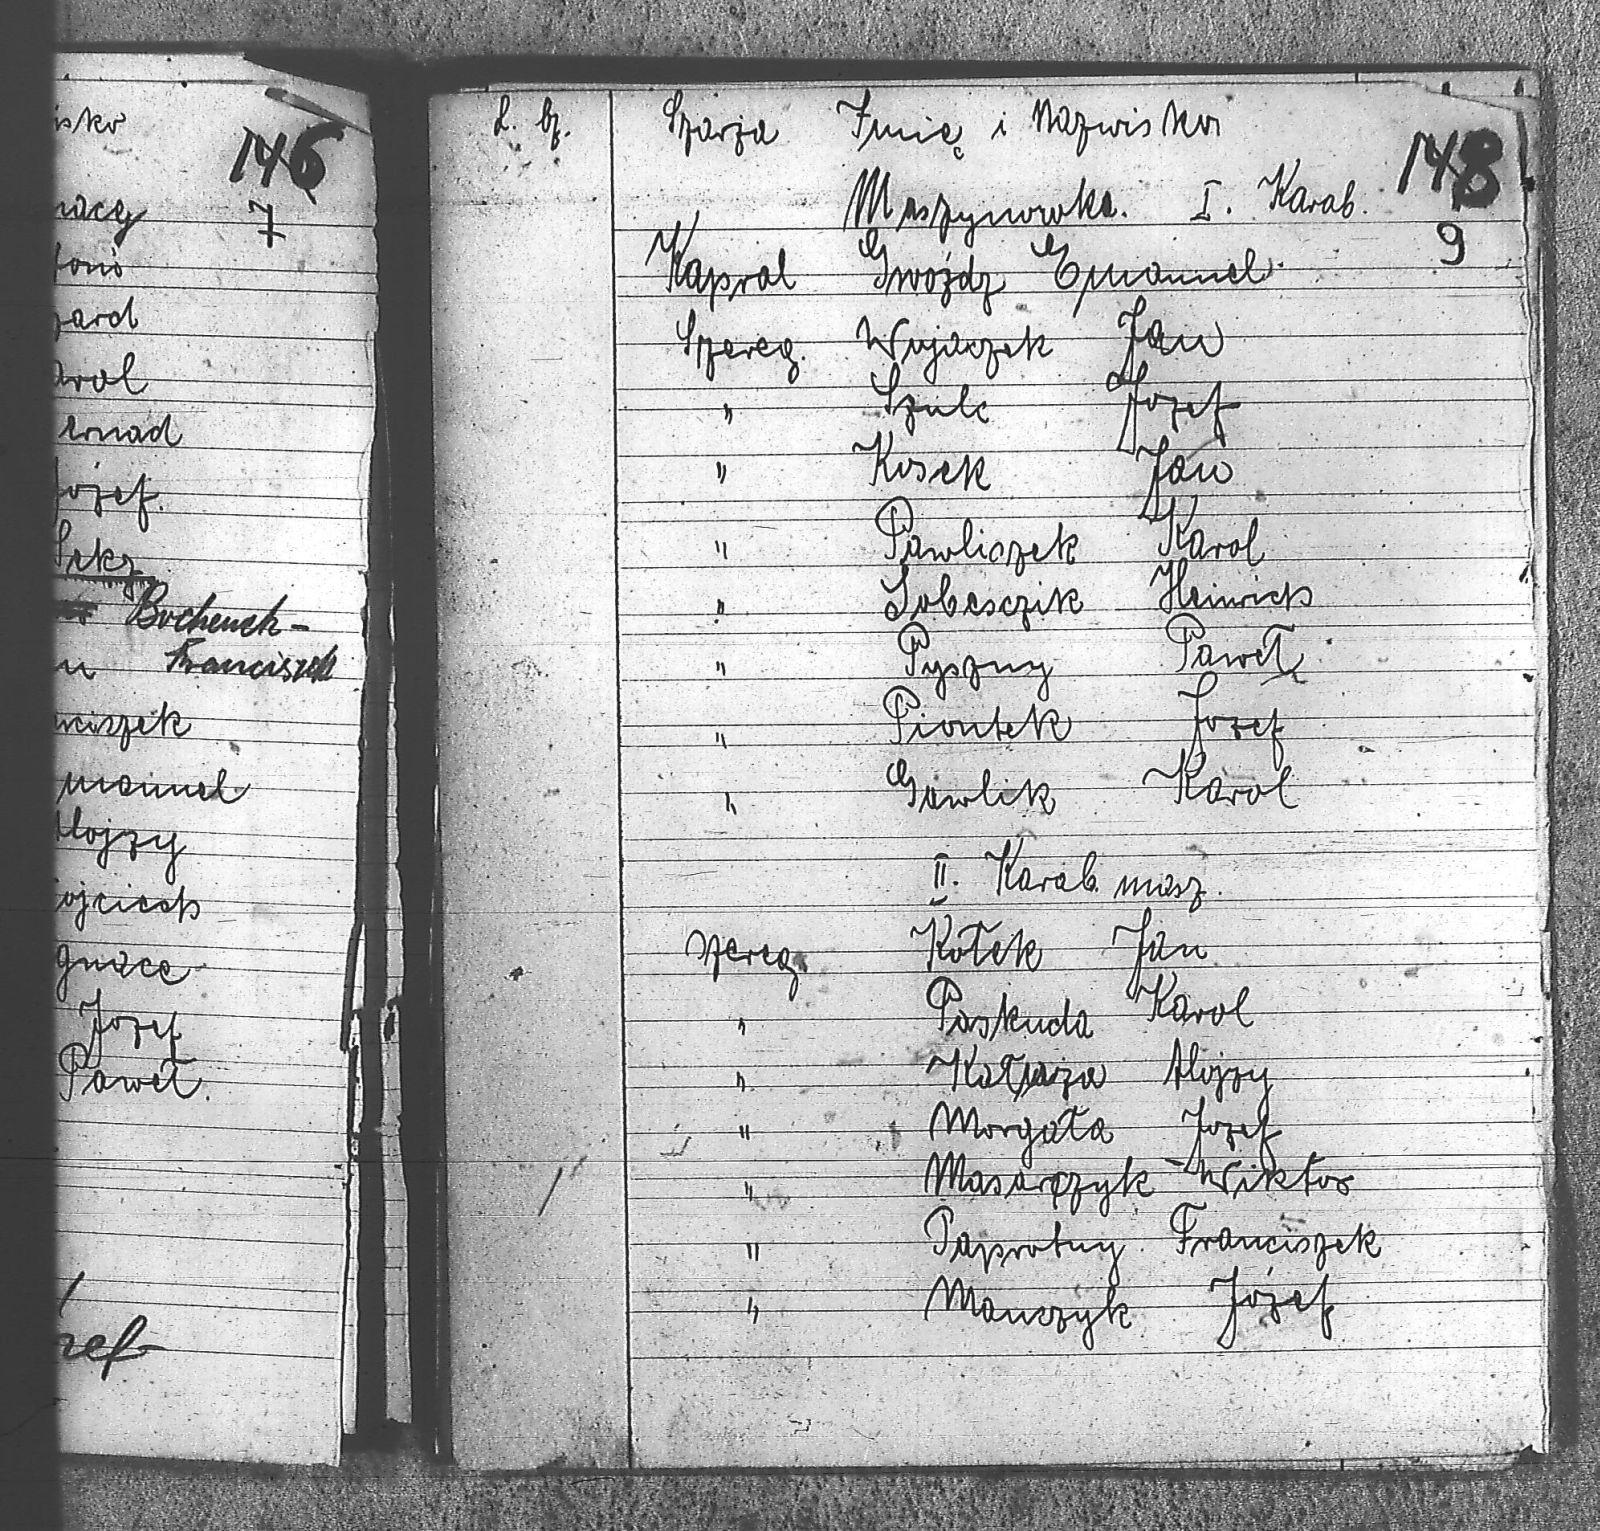 146
7
ard
arol
Józef.
Bochenek-
Franciszek
nciszek
manuel
lojzy
ojciech
gnace
Józef
Paweł.
zef
L. bz. Szarża Imię i Nazwisko
148
Maszynowka. I. Karab.
9
Kapral Gwoźdz Emanuel.
Szereg. Wujaczek Jan
" Szulc Jozef
" Kosek Jan
" Pawliczek Karol
" Sobesczik Heinrich
" Pyszny Paweł
" Piontek Jozef
" Gawlik Karol
II. Karab. masz.
szereg. Kołek Jan
" Paskuda Karol
" Alojzy
" Morgała Jozef
" Masarczyk Wiktor
" Paprotny Franciszek
" Manczyk Józef